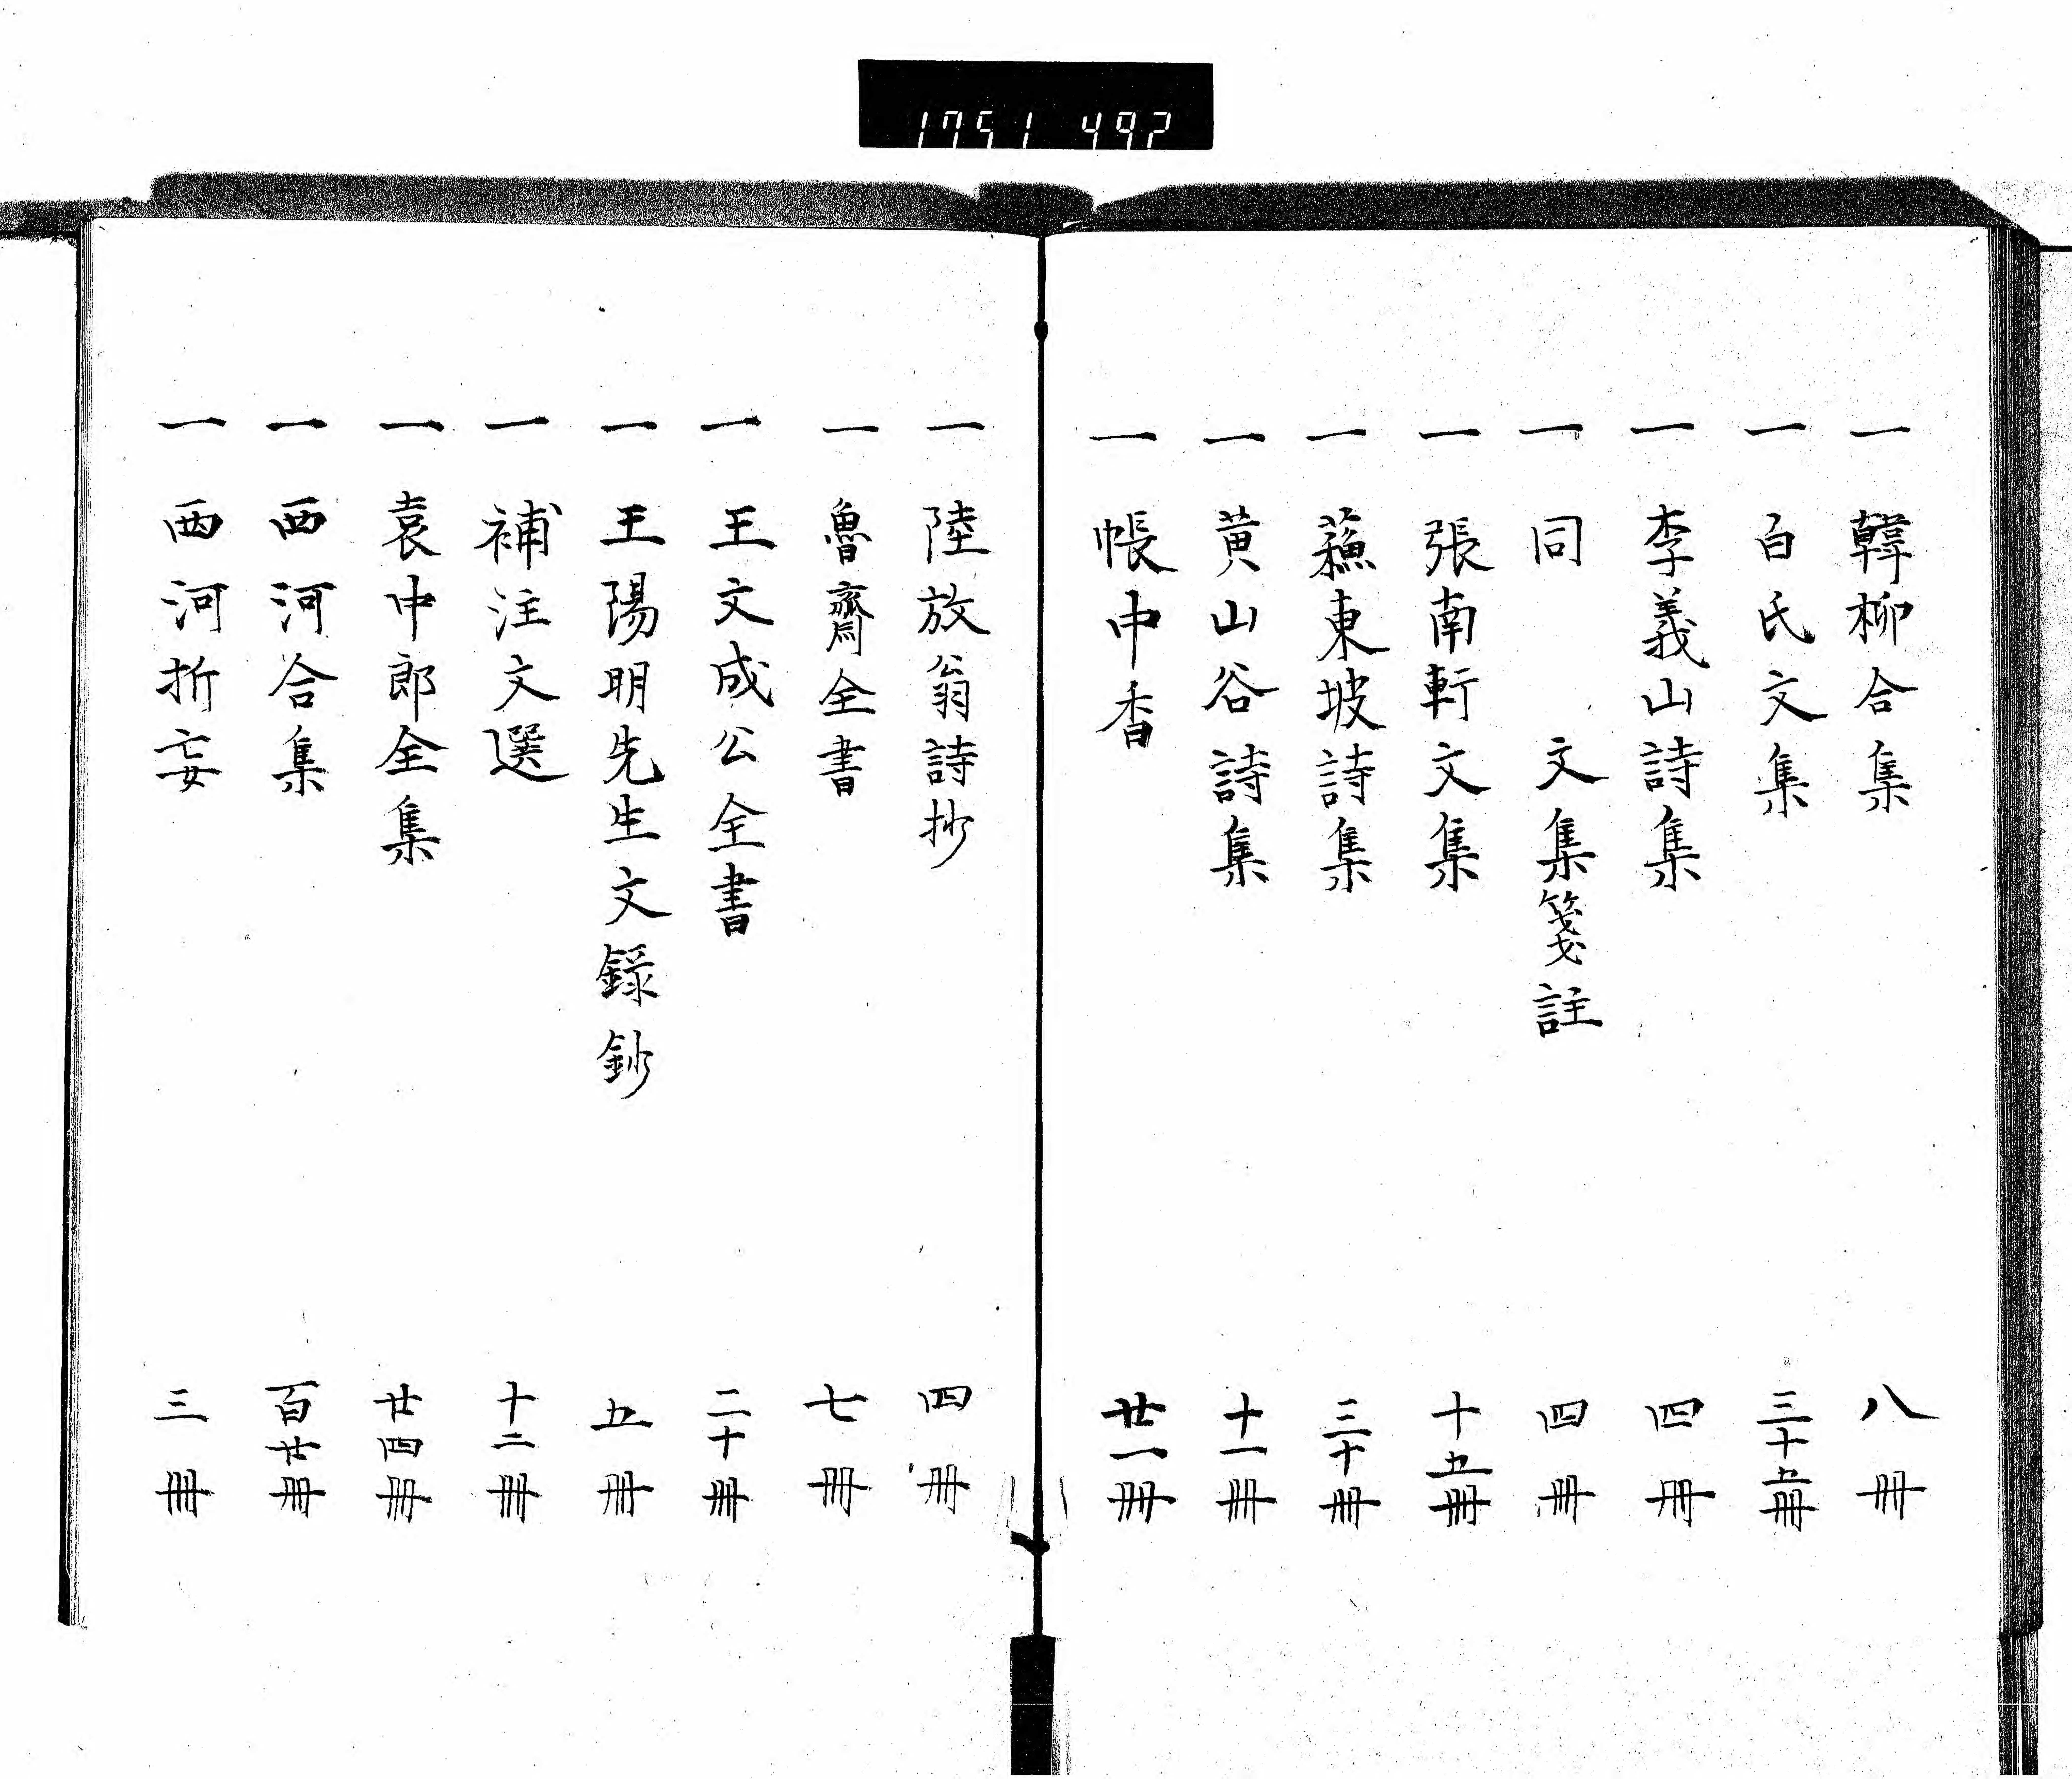 1751 497
一 韓柳合集 八冊
一 白氏文集 三十五冊
一 李義山詩集 四冊
一 同 文集箋註 四冊
一 張南軒文集 十五冊
一 蘓東坡詩集 三十冊
一 黄山谷詩集 十一冊
一 帳中香 廿一冊
一 陸放翁詩抄 四冊
一 魯齋全書 七冊
一 王文成公全書 二十冊
一 王陽明先生文録鈔 五冊
一 補注文選 十二冊
一 袁中郎全集 廿四冊
一 西河合集 百廿冊
一 西河折妄 三冊